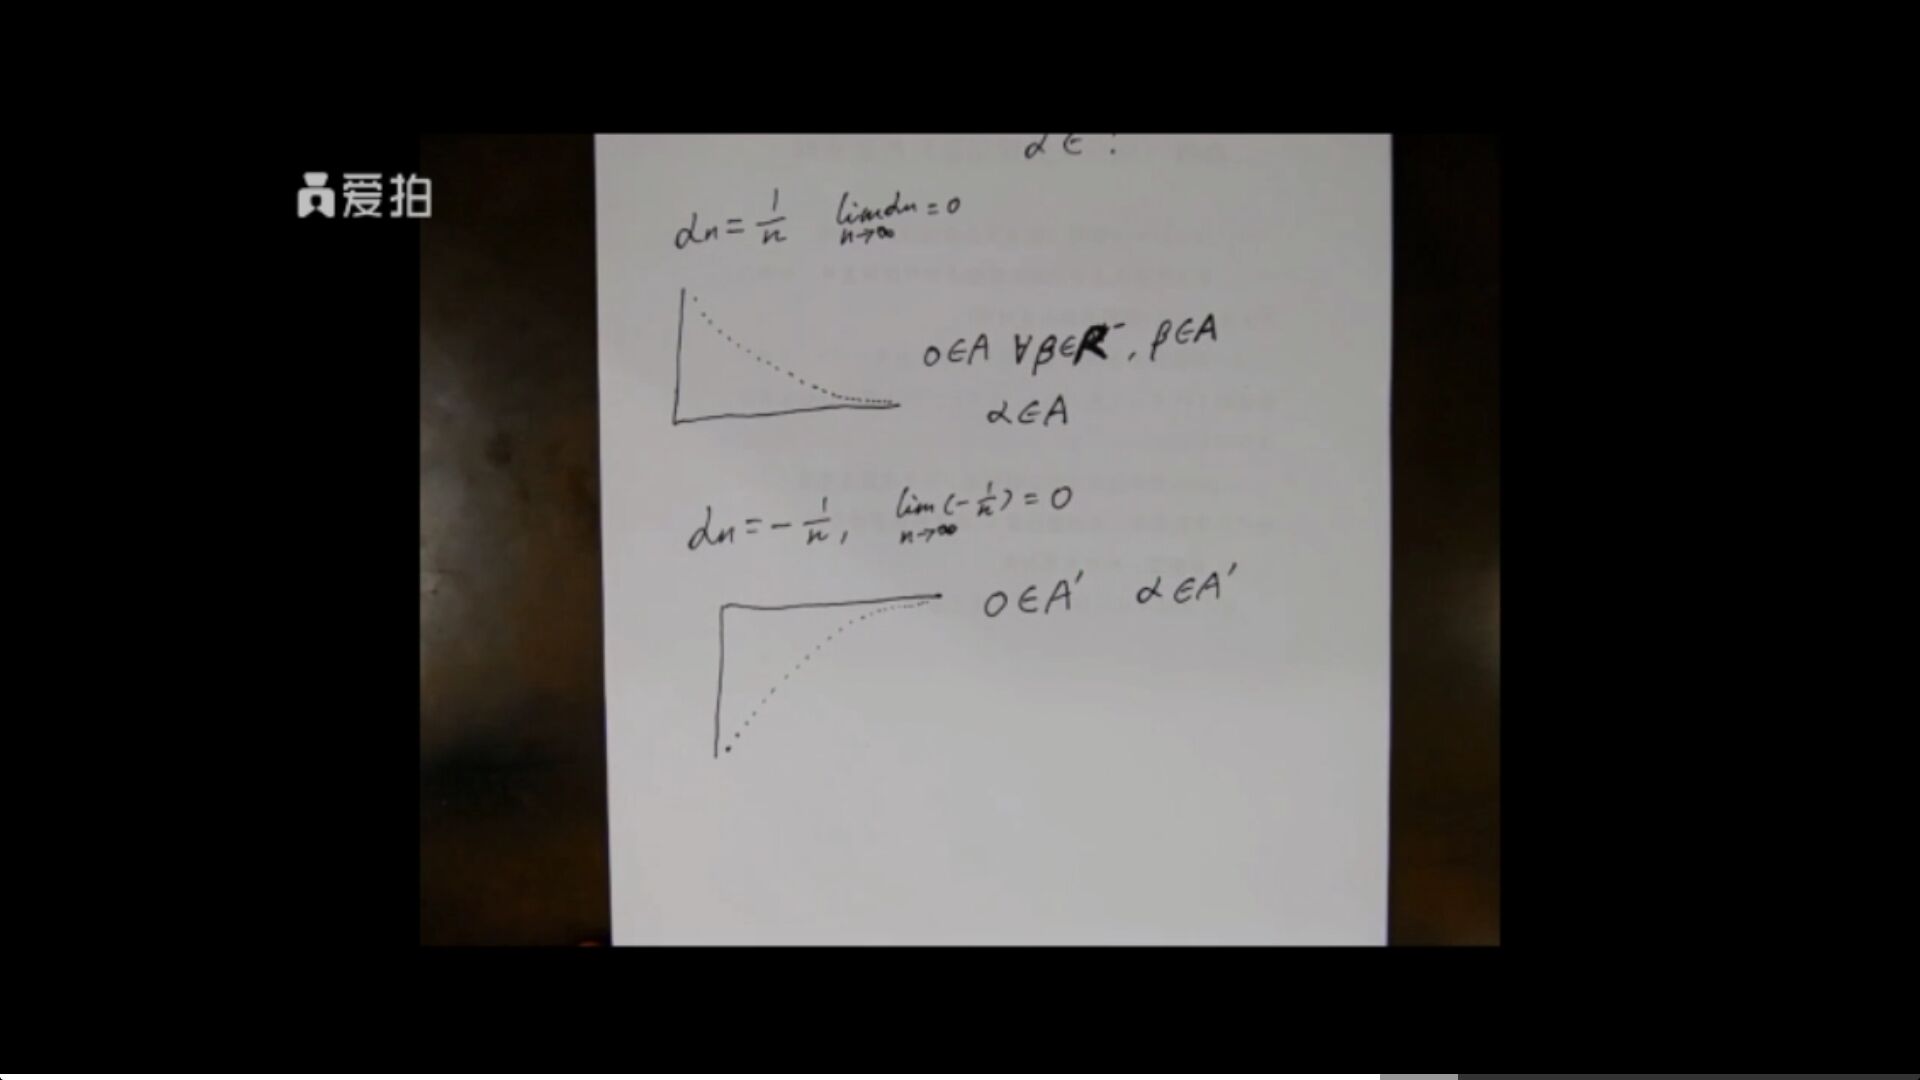 爱拍
α ∈ ?
αn = 1/n lim n→∞ αn = 0
0∈A ∀β∈R⁻, β∈A
α∈A
αn = - 1/n, lim n→∞ (- 1/n) = 0
0∈A′ α∈A′